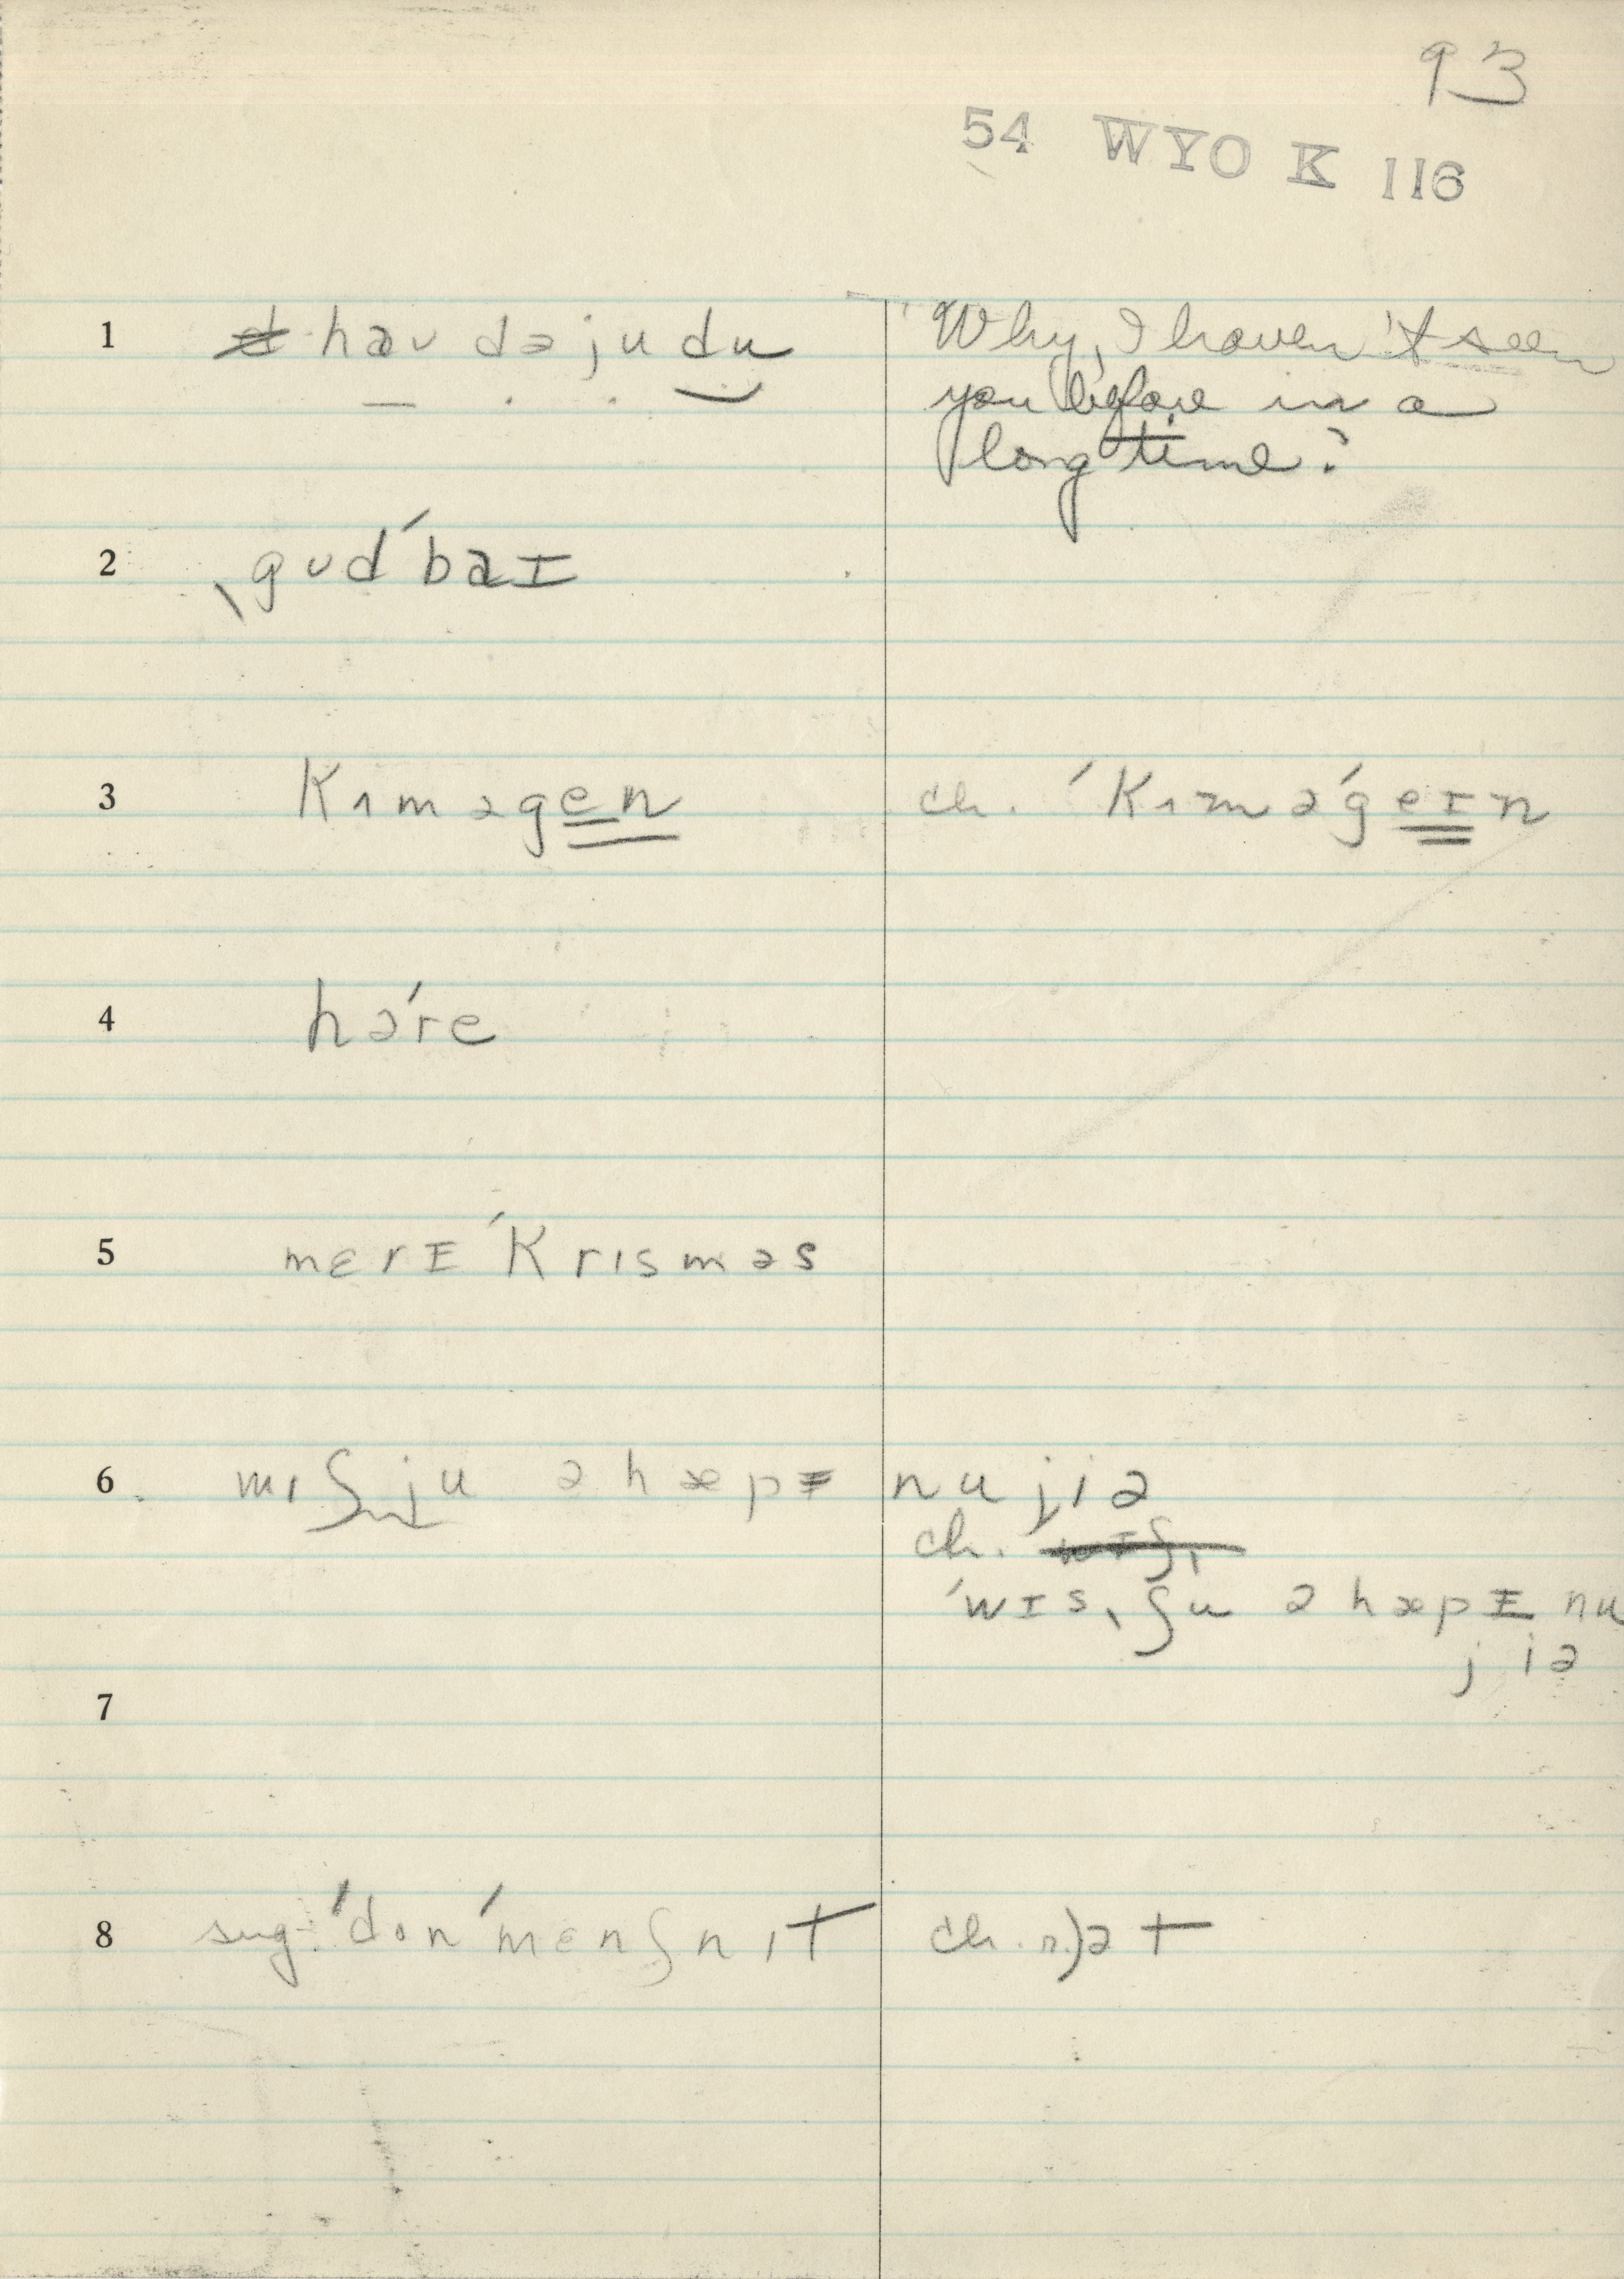 93
54 WYO K 116
1 haʊ də ju du Why, I haven't seen
you before in a
long time?
2 ˌgʊdˈbaɪ
3 kɪməgen ch. ˈkɪməˈgeɪn
4 həˈre
5 merɪˈkrɪsməs
6 wɪʃju ə hæpɪ nu jiə
ch.
ˈwɪsˌʃu ə hæpɪ nu
jiə
7
8 sug. ˈdonˈmenʃnɪt ch. n)ət